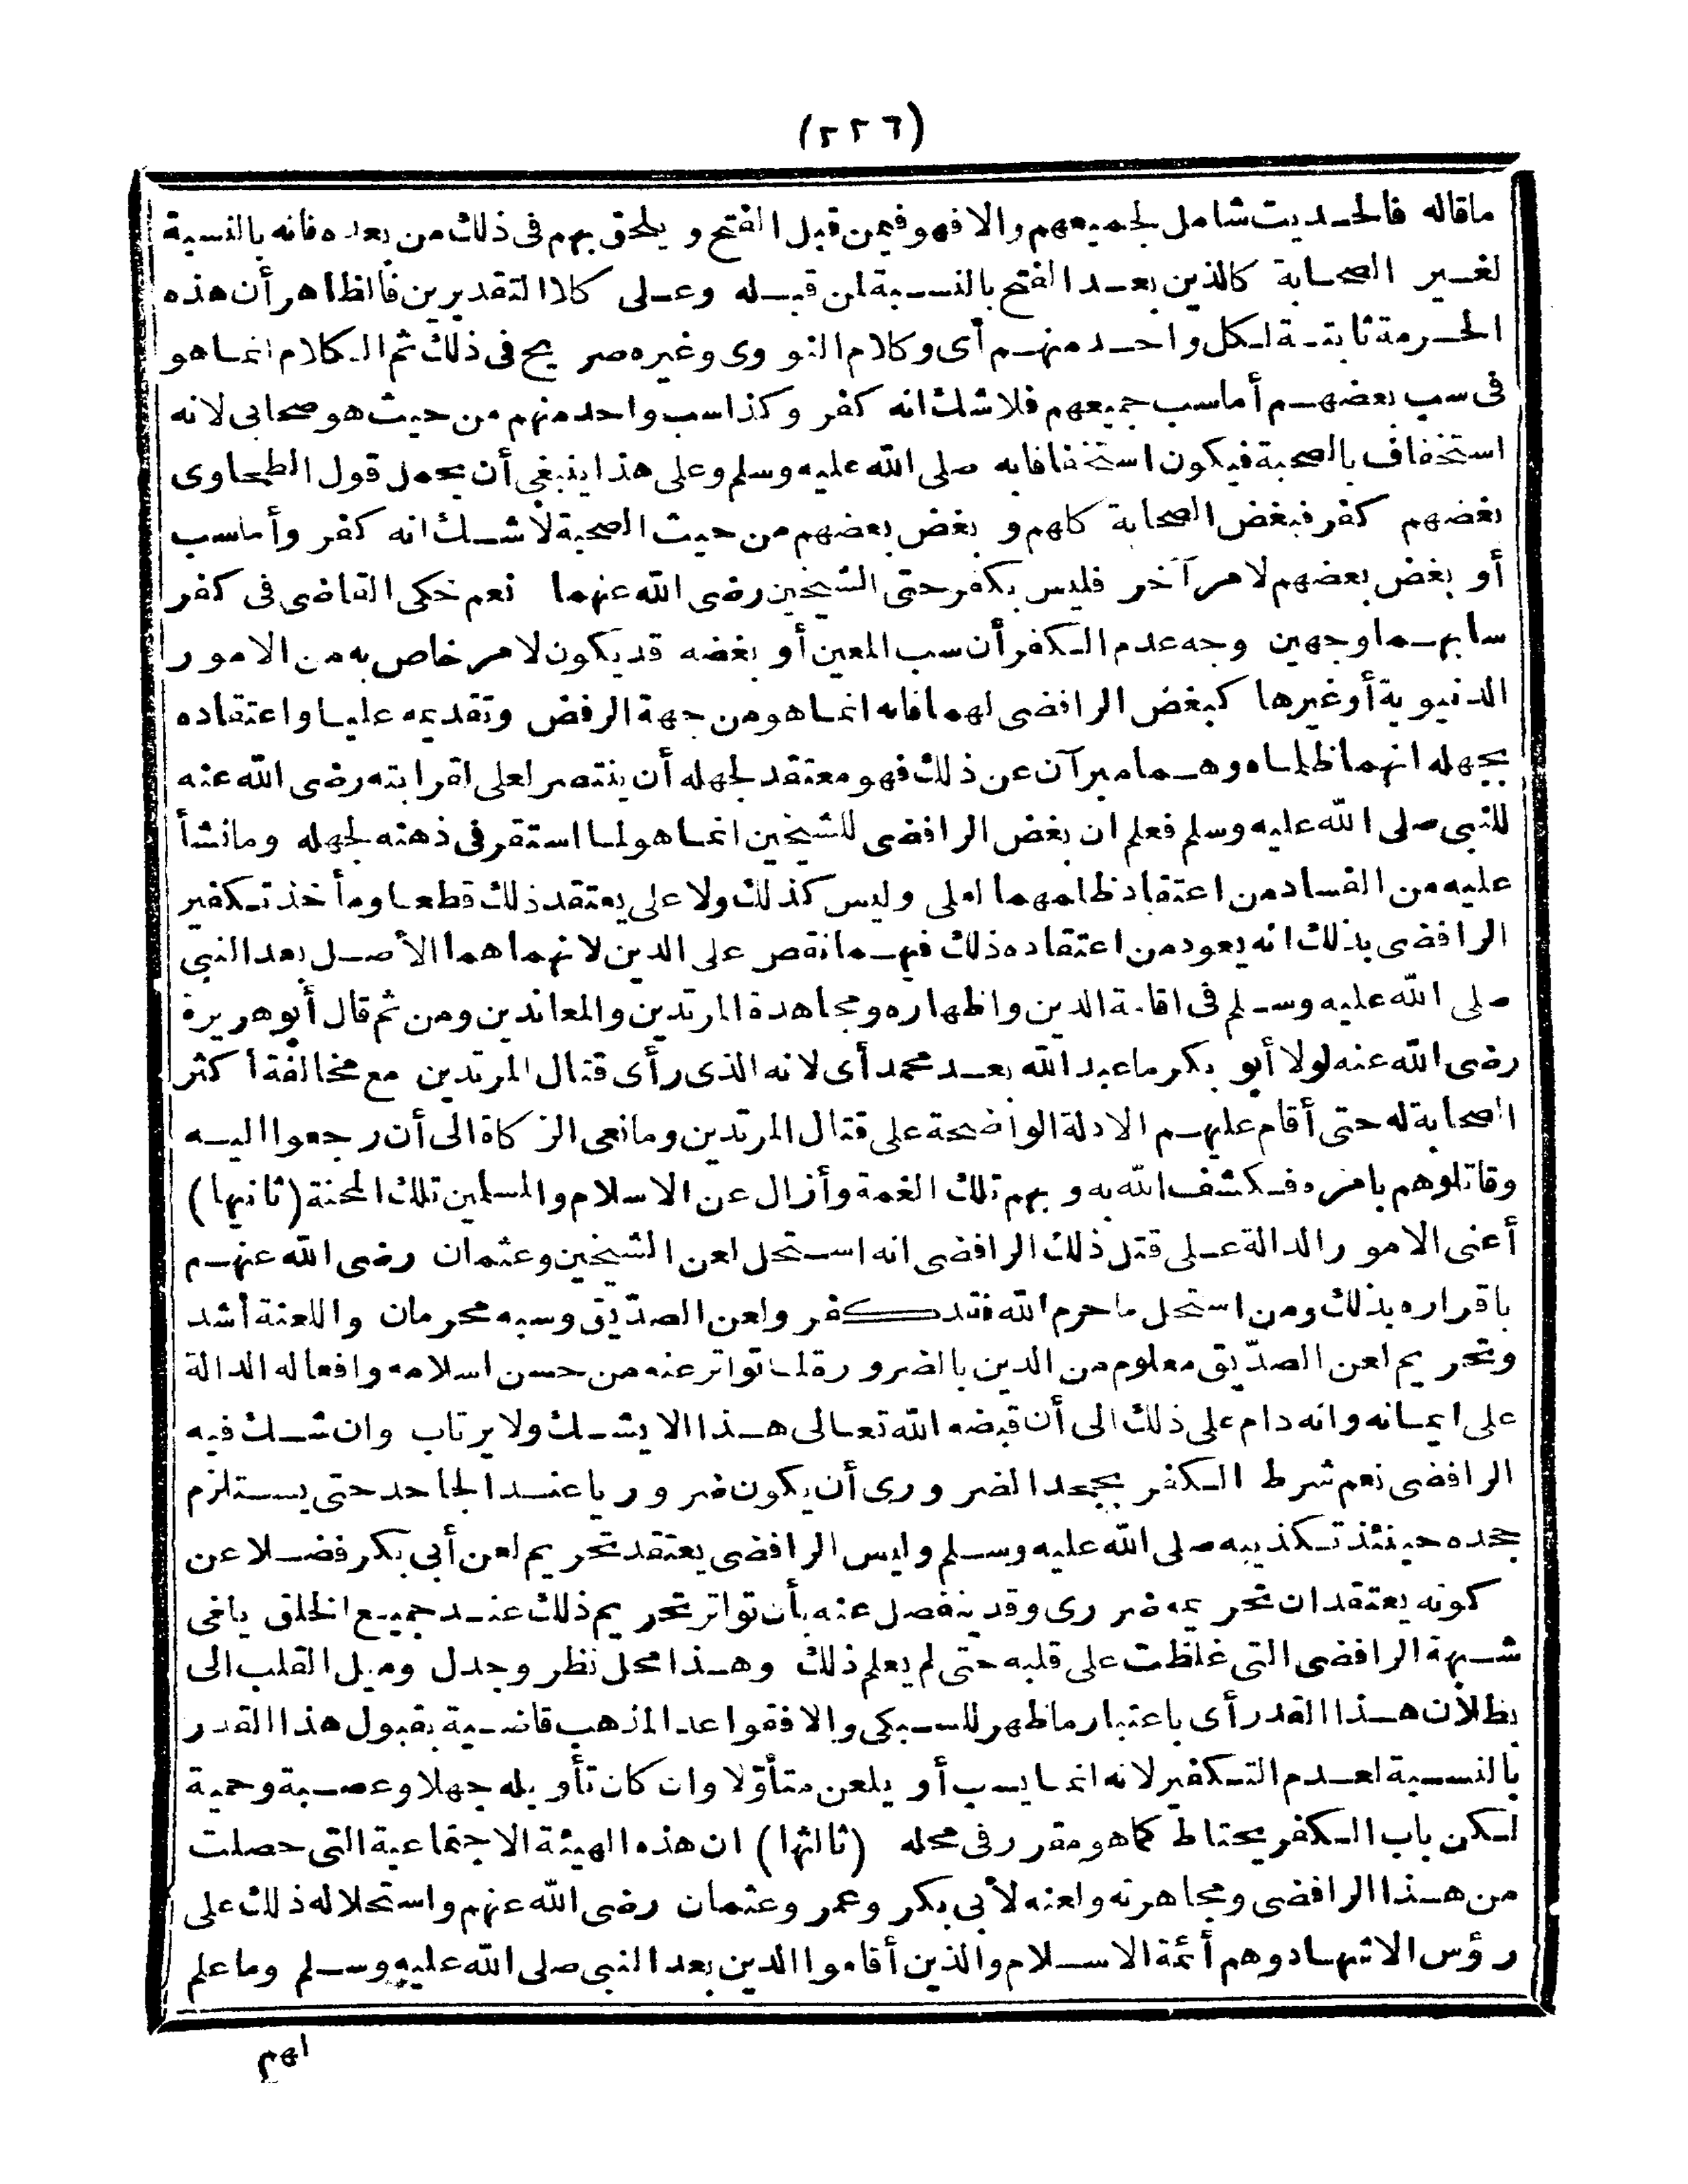 (٢٢٦)
ماقاله فالحديث شامل لجميعهم والا فهو فيمن قبل الفتح ويلحق بهم فى ذلك من بعده فانه بالنسبة
لغير الصحابة كالذين بعد الفتح بالنسبة لمن قبله وعلى كلا التقديرين فالظاهر أن هذه
الحرمة ثابتة لكل واحد منهم أى وكلام النووى وغيره صريح فى ذلك ثم الكلام انما هو
فى سب بعضهم أما سب جميعهم فلا شك انه كفر وكذا سب واحد منهم من حيث هو صحابى لانه
استخفاف بالصحبة فيكون استخفافا به صلى الله عليه وسلم وعلى هذا ينبغى أن يحمل قول الطحاوى
بغضهم كفر فبغض الصحابة كلهم وبغض بعضهم من حيث الصحبة لا شك انه كفر وأما سب
أو بغض بعضهم لامر آخر فليس بكفر حتى الشيخين رضى الله عنهما نعم حكى القاضى فى كفر
سابهما وجهين وجه عدم الكفر أن سب المعين أو بغضه قد يكون لامر خاص به من الامور
الدنيوية أو غيرها كبغض الرافضى لهما فانه انما هو من جهة الرفض وتقديمه عليا واعتقاده
بجهله انهما ظلماه وهما مبرآن عن ذلك فهو معتقد لجهله أن ينتصر لعلى لقرابته رضى الله عنه
للنبى صلى الله عليه وسلم فعلم ان بغض الرافضى للشيخين انما هو لما استقر فى ذهنه لجهله ومانشأ
عليه من الفساد من اعتقاد ظلمهما لعلى وليس كذلك ولا على يعتقد ذلك قطعا ومأخذ تكفير
الرافضى بذلك انه يعود من اعتقاده ذلك فيهما نقص على الدين لانهما هما الأصل بعد النبى
صلى الله عليه وسلم فى اقامة الدين واظهاره ومجاهدة المرتدين والمعاندين ومن ثم قال أبو هريرة
رضى الله عنه لولا أبو بكر ما عبد الله بعد محمد أى لانه الذى رأى قتال المرتدين مع مخالفة أكثر
الصحابة له حتى أقام عليهم الادلة الواضحة على قتال المرتدين ومانعى الزكاة الى أن رجعوا اليه
وقاتلوهم بامره فكشف الله به وبهم تلك الغمة وأزال عن الاسلام والمسلمين تلك المحنة (ثانيها)
أعنى الامور الدالة على قتل ذلك الرافضى انه استحل لعن الشيخين وعثمان رضى الله عنهم
باقراره بذلك ومن استحل ما حرم الله فقد كفر ولعن الصدّيق وسبه محرمان واللعنة أشد
وتحريم لعن الصدّيق معلوم من الدين بالضرورة لما تواتر عنه من حسن اسلامه وافعاله الدالة
على ايمانه وانه دام على ذلك الى أن قبضه الله تعالى هذا لا يشك ولا يرتاب وان شك فيه
الرافضى نعم شرط الكفر بجحد الضرورى أن يكون ضروريا عند الجاحد حتى يستلزم
جحده حينئذ تكذيبه صلى الله عليه وسلم وليس الرافضى يعتقد تحريم لعن أبى بكر فضلا عن
كونه يعتقد ان تحريمه ضرورى وقد ينفصل عنه بأن تواتر تحريم ذلك عند جميع الخلق يلغى
شبهة الرافضى التى غلظت على قلبه حتى لم يعلم ذلك وهذا محل نظر وجدل وميل القلب الى
بطلان هذا القدر أى باعتبار ماظهر للسبكى والا فقواعد المذهب قاضية بقبول هذا القدر
بالنسبة لعدم التكفير لانه انما يسب أو يلعن متأوّلا وان كان تأويله جهلا وعصبة وحمية
لكن باب الكفر يحتاط كما هو مقرر فى محله (ثالثها) ان هذه الهيئة الاجتماعية التى حصلت
من هذا الرافضى ومجاهرته ولعنه لأبى بكر وعمر وعثمان رضى الله عنهم واستحلاله ذلك على
رؤس الاشهاد وهم أئمة الاسلام والذين أقاموا الدين بعد النبى صلى الله عليه وسلم وما علم
لهم